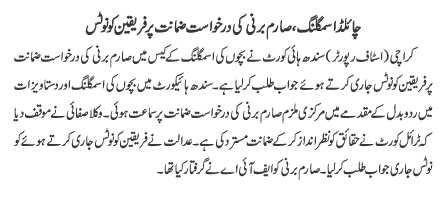 چائلڈ اسمگلنگ، صارم برنی کی درخواست ضمانت پر فریقین کو نوٹس
کراچی (اسٹاف رپورٹر) سندھ ہائی کورٹ نے بچوں کی اسمگلنگ کے کیس میں صارم برنی کی درخواست ضمانت
پر فریقین کو نوٹس جاری کرتے ہوئے جواب طلب کرلیا ہے۔ سندھ ہائیکورٹ میں بچوں کی اسمگلنگ اور دستاویزات
میں ردوبدل کے مقدمے میں مرکزی ملزم صارم برنی کی درخواست ضمانت پر سماعت ہوئی۔ وکلا صفائی نے موقف دیا
کہ ٹرائل کورٹ نے حقائق کو نظر انداز کر کے ضمانت مسترد کی ہے۔ عدالت نے فریقین کو نوٹس جاری کرتے ہوئے کو
نوٹس جاری جواب طلب کرلیا۔ صارم برنی کو ایف آئی اے نے گرفتار کیا تھا۔